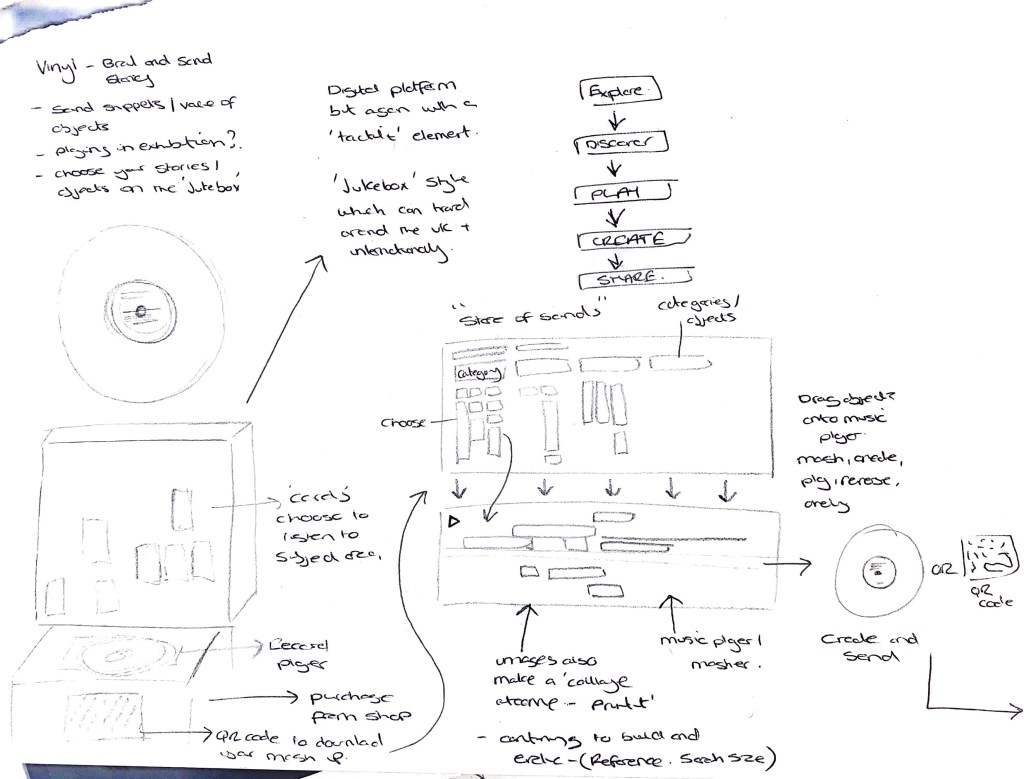 Vinyl - Build and send
story
- Send snippets / value of
objects
- playing in exhibition?
- choose your stories /
objects on the 'Jukebox'
Digital platform
but again with a
'tactile' element.
'Jukebox' style
which can travel
around the UK +
internationally.
Explore
Discover
PLAY
CREATE
SHARE.
"Store of Sounds"
categories /
objects
category
choose
Drag objects
onto music
player.
mash, create,
play, reverse,
'cards'
choose to
listen to
subject
OR
QR
code
Create and
send
Record
player
music player /
masher.
images also
make a 'collage
- print it'
purchase
from shop
QR code to download
your mash up.
- continuing to build and
evolve - (Reference.